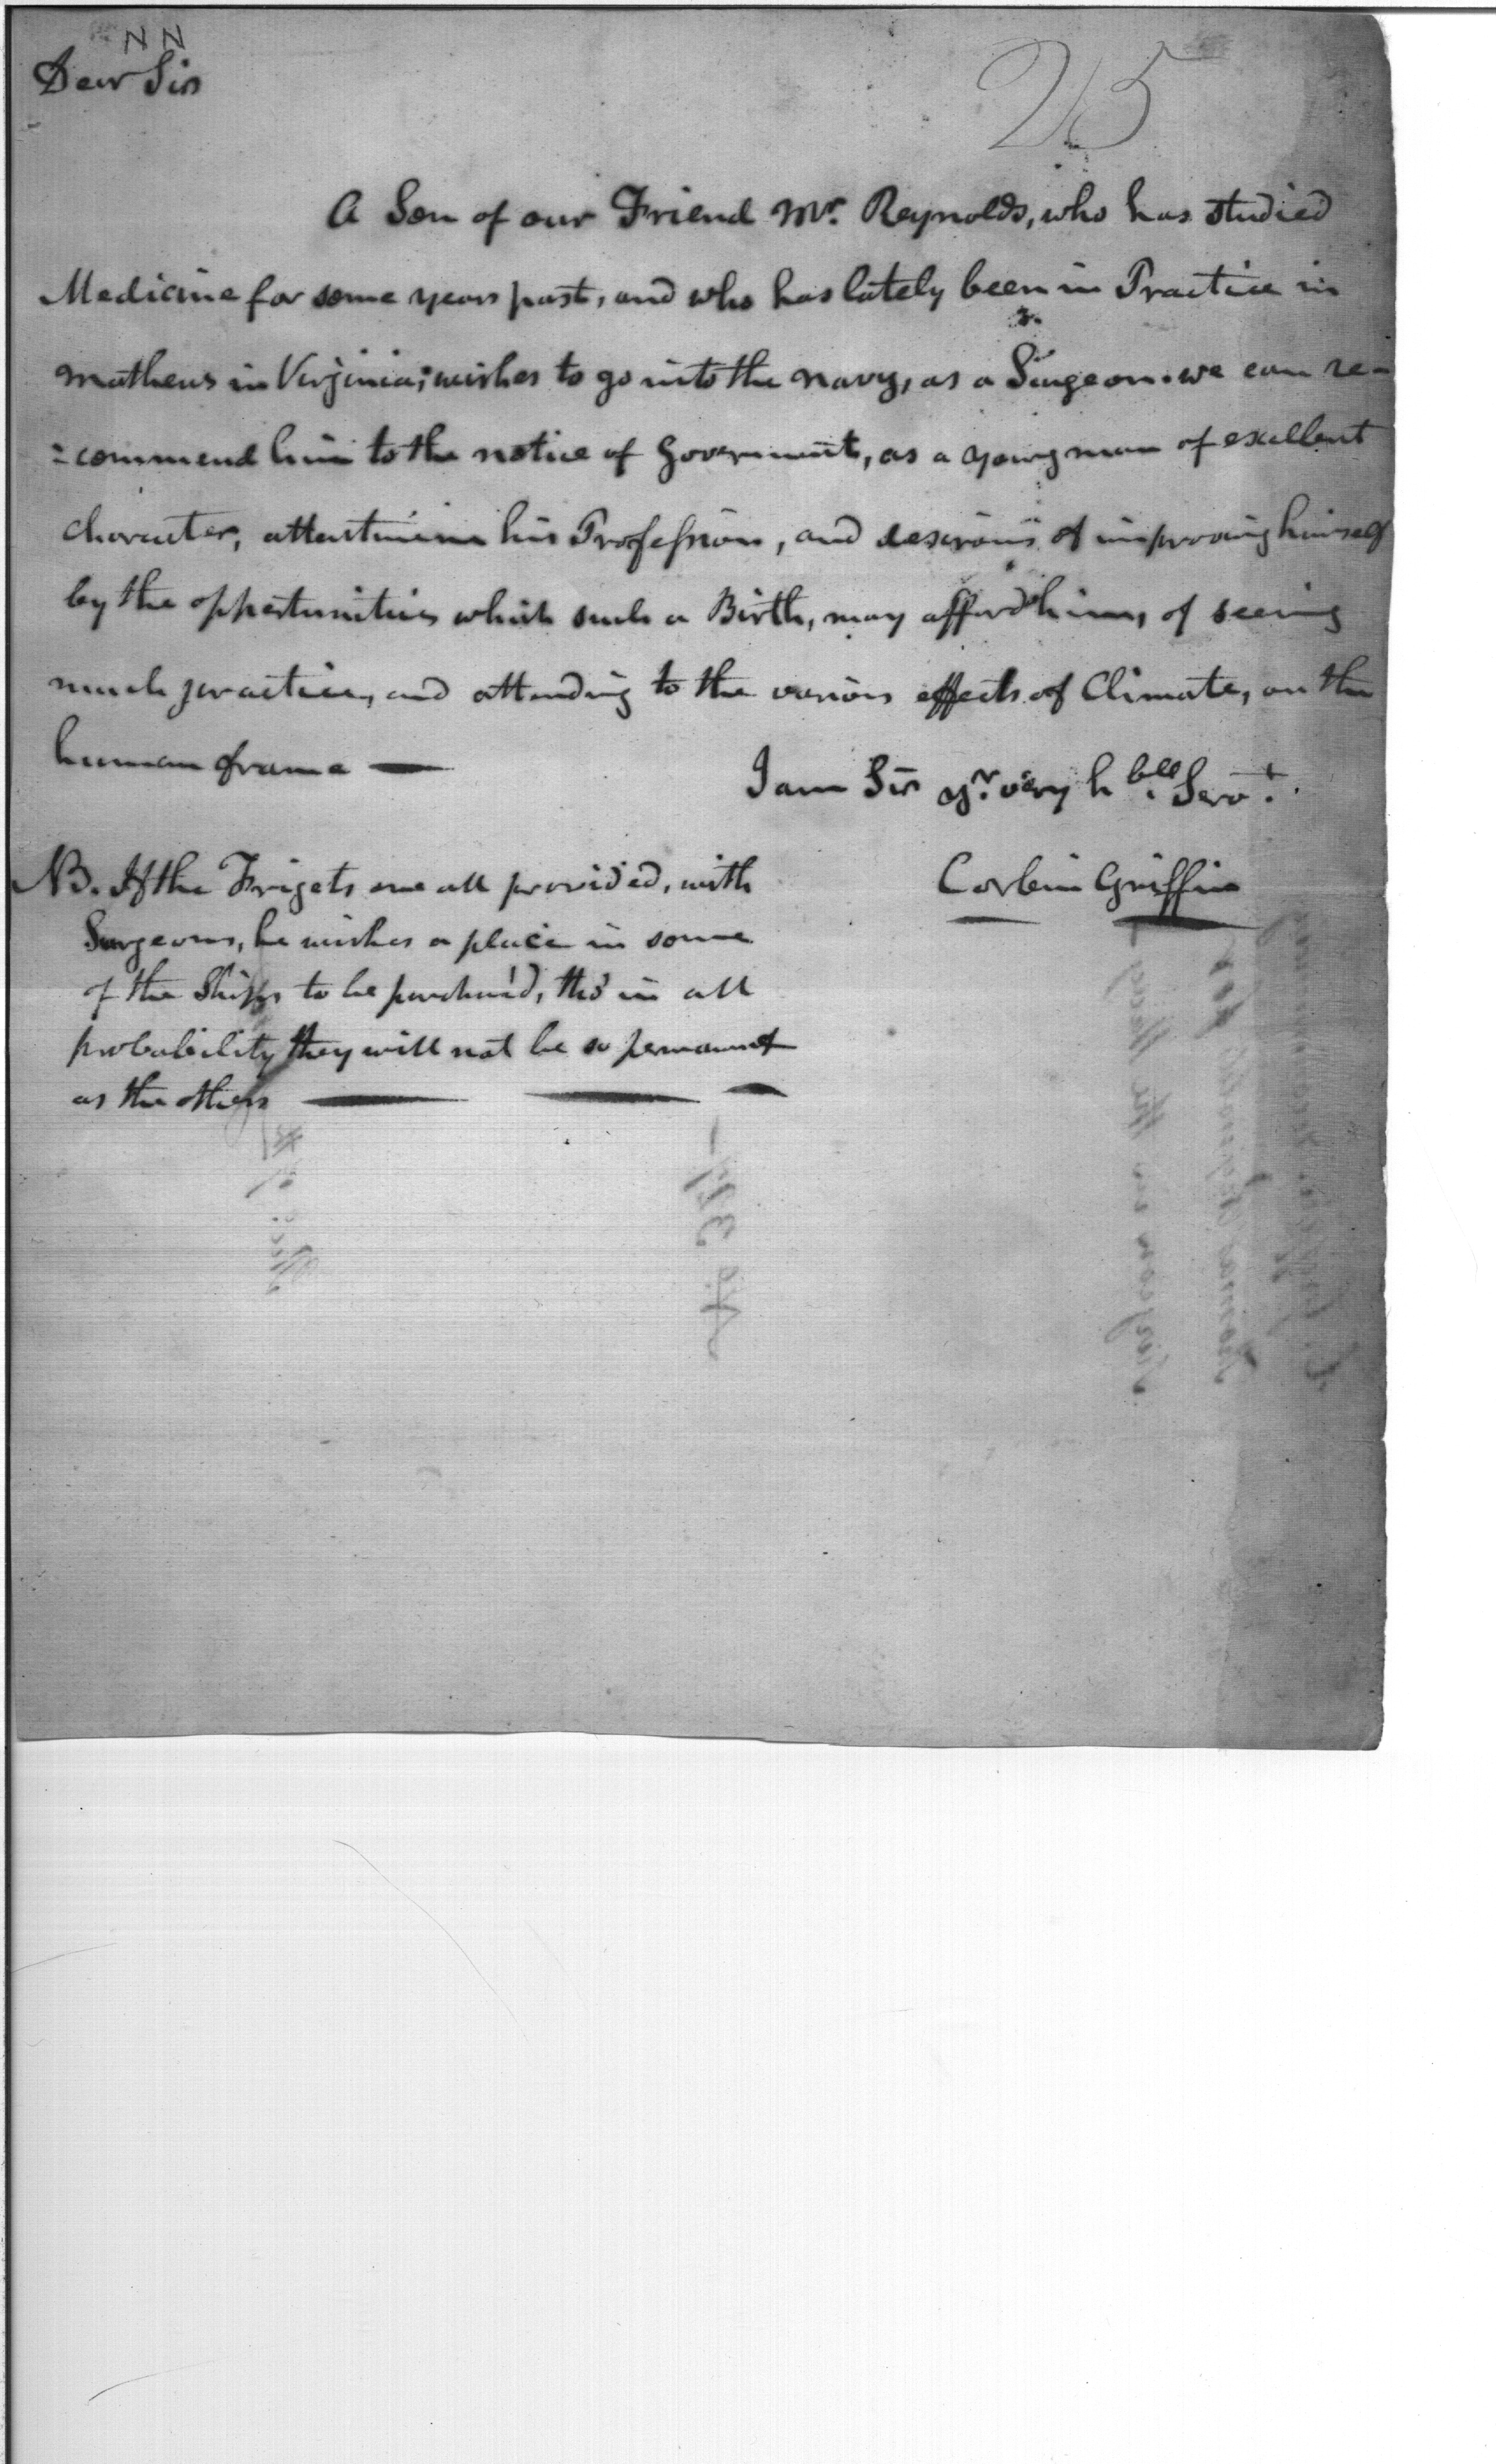 N N
215
Dear Sir
A Son of our Friend Mr. Reynolds, who has studied
Medicine for some years past, and who has lately been in Practice in
Mathews in Virginia; wishes to go into the Navy, as a Surgeon. we can re-
=commend him to the notice of Goverment, as a young man of excellent
character, attentive in his Profession, and desirous of improving himself
by the opportunities which such a Birth, may afford him, of seeing
much practice, and attending to the various effects of Climate, on the
human frame —
I am Sir yr. very hble. Servt.
Corbin Griffin
NB. If the Frigets are all provided, with
Surgeons, he wishes a place in some
of the Ships to be purchas'd, tho' in all
probability they will not be so permanent
as the others — — —